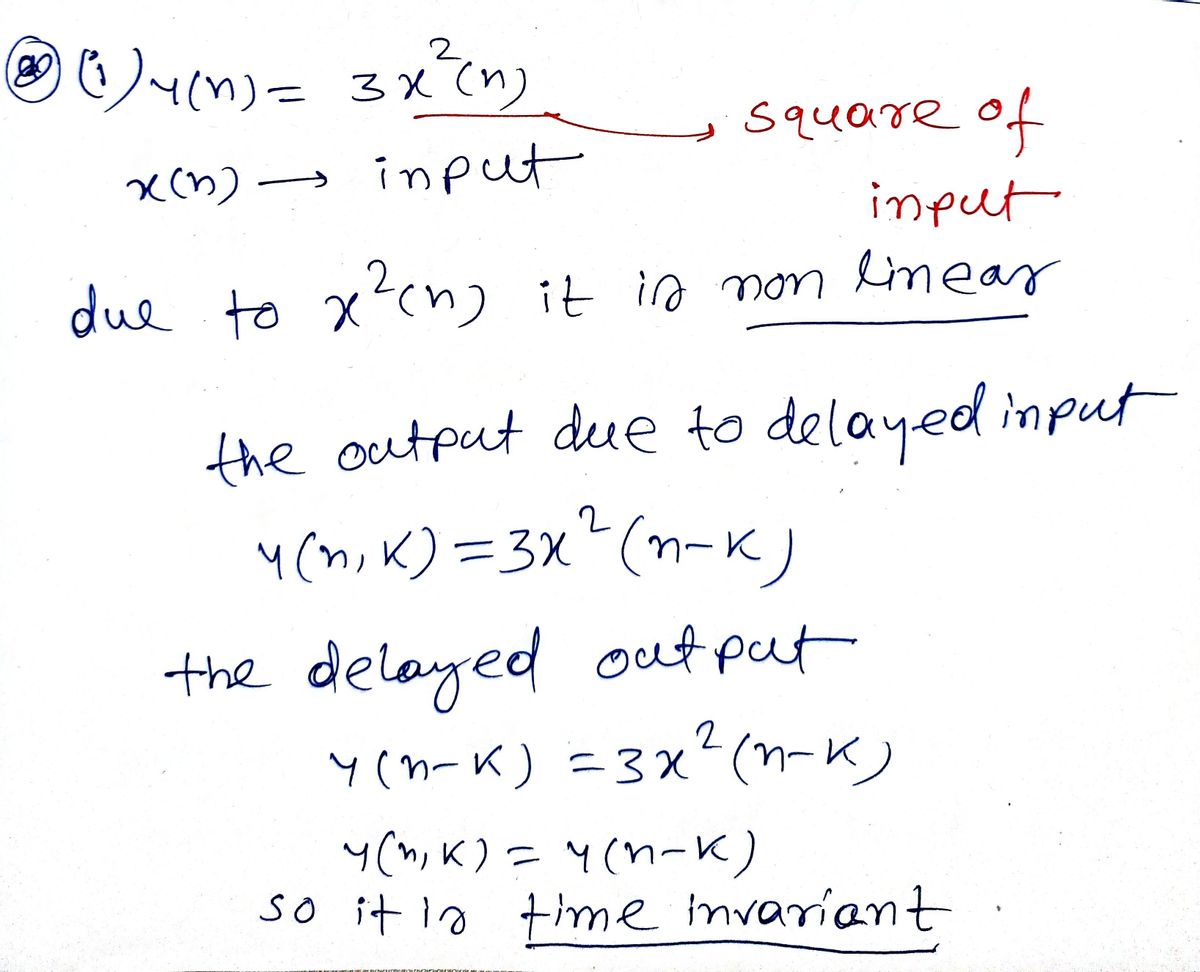 (i) y(n) = 3x²(n)
square of
x(n) → input
input
due to x²(n) it is non linear
the output due to delayed input
y(n, K) = 3x²(n-K)
the delayed output
y(n-K) = 3x²(n-K)
y(n, K) = y(n-K)
so it is time invariant.